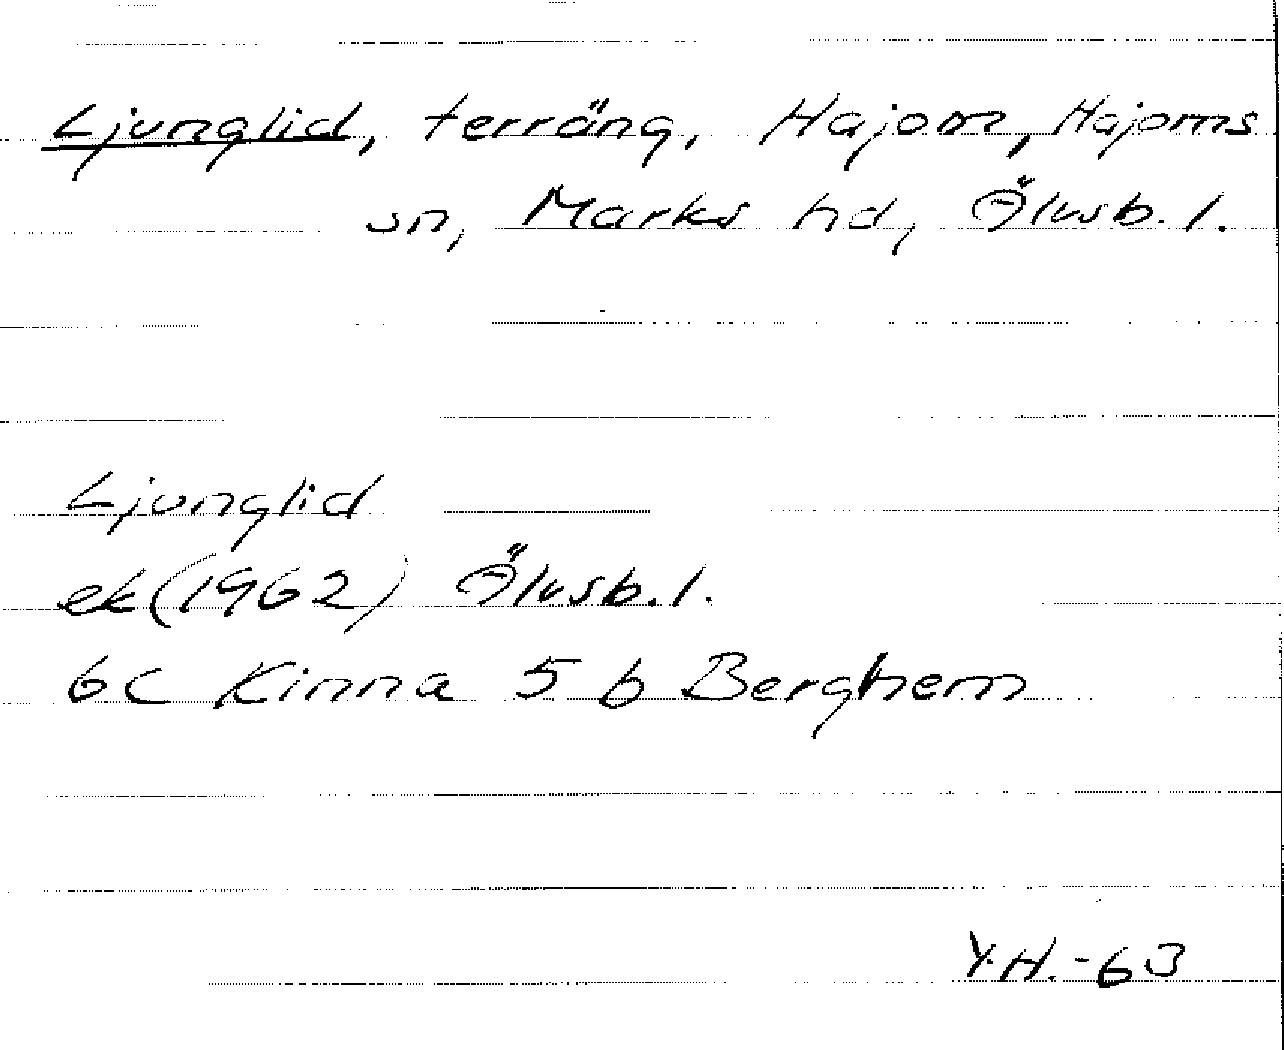 Ljunglid, terräng, Hajom, Hajoms
sn, Marks hd, Älvsb. l.
Ljunglid
ek (1962) Älvsb. l.
6C Kinna 5 b Berghem
Y.H.-63